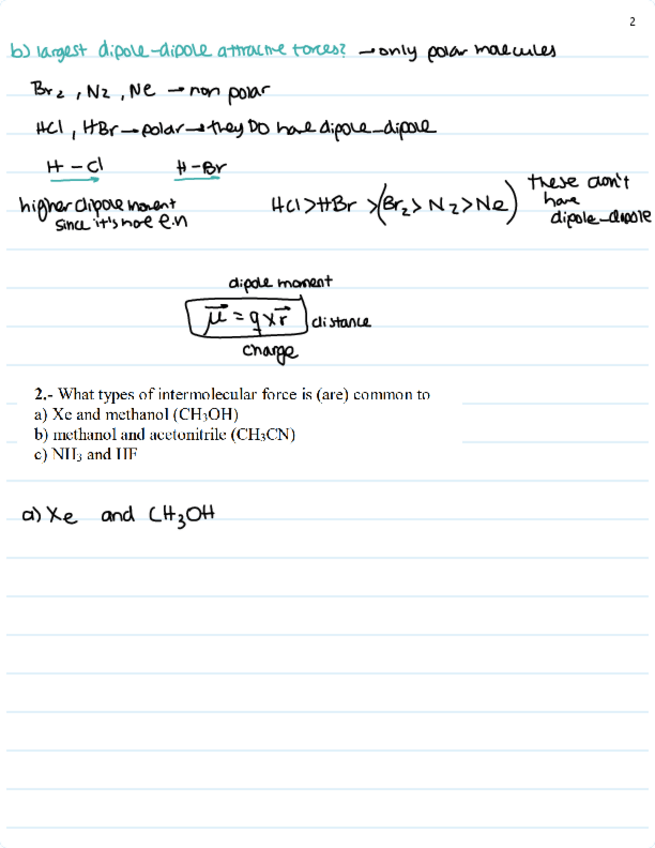 2
b) largest dipole-dipole attractive forces? → only polar molecules
Br₂, N₂, Ne → non polar
HCl, HBr → polar → they DO have dipole-dipole
H-Cl H-Br
higher dipole moment
since it's more e.n
HCl>HBr >(Br₂> N₂>Ne)
these don't
have
dipole-dipole
dipole moment
μ⃗ = q x r⃗ distance
charge
2.- What types of intermolecular force is (are) common to
a) Xe and methanol (CH₃OH)
b) methanol and acetonitrile (CH₃CN)
c) NH₃ and HF
a) Xe and CH₃OH